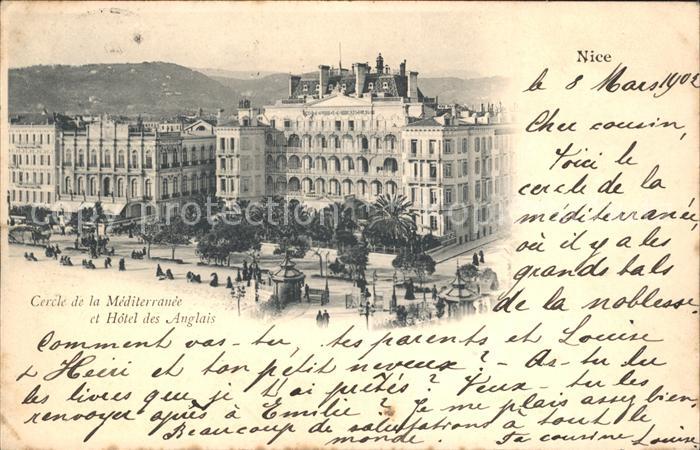 Nice
le 8 Mars 1902
Cher cousin,
Voici le
cercle de la
méditerranée,
où il y a les
grands bals
de la noblesse.
HOTEL DES ANGLAIS
Copyright
Cercle de la Méditerranée
et Hôtel des Anglais
Comment vas-tu, tes parents et Louise
& Henri et ton petit neveux? - As-tu lu
les livres que je t'ai prêtés? Veux-tu les
renvoyer après à Emilie? Je me plais assez bien à Nice
Beaucoup de salutations à tout le
monde. Ta cousine Louise.